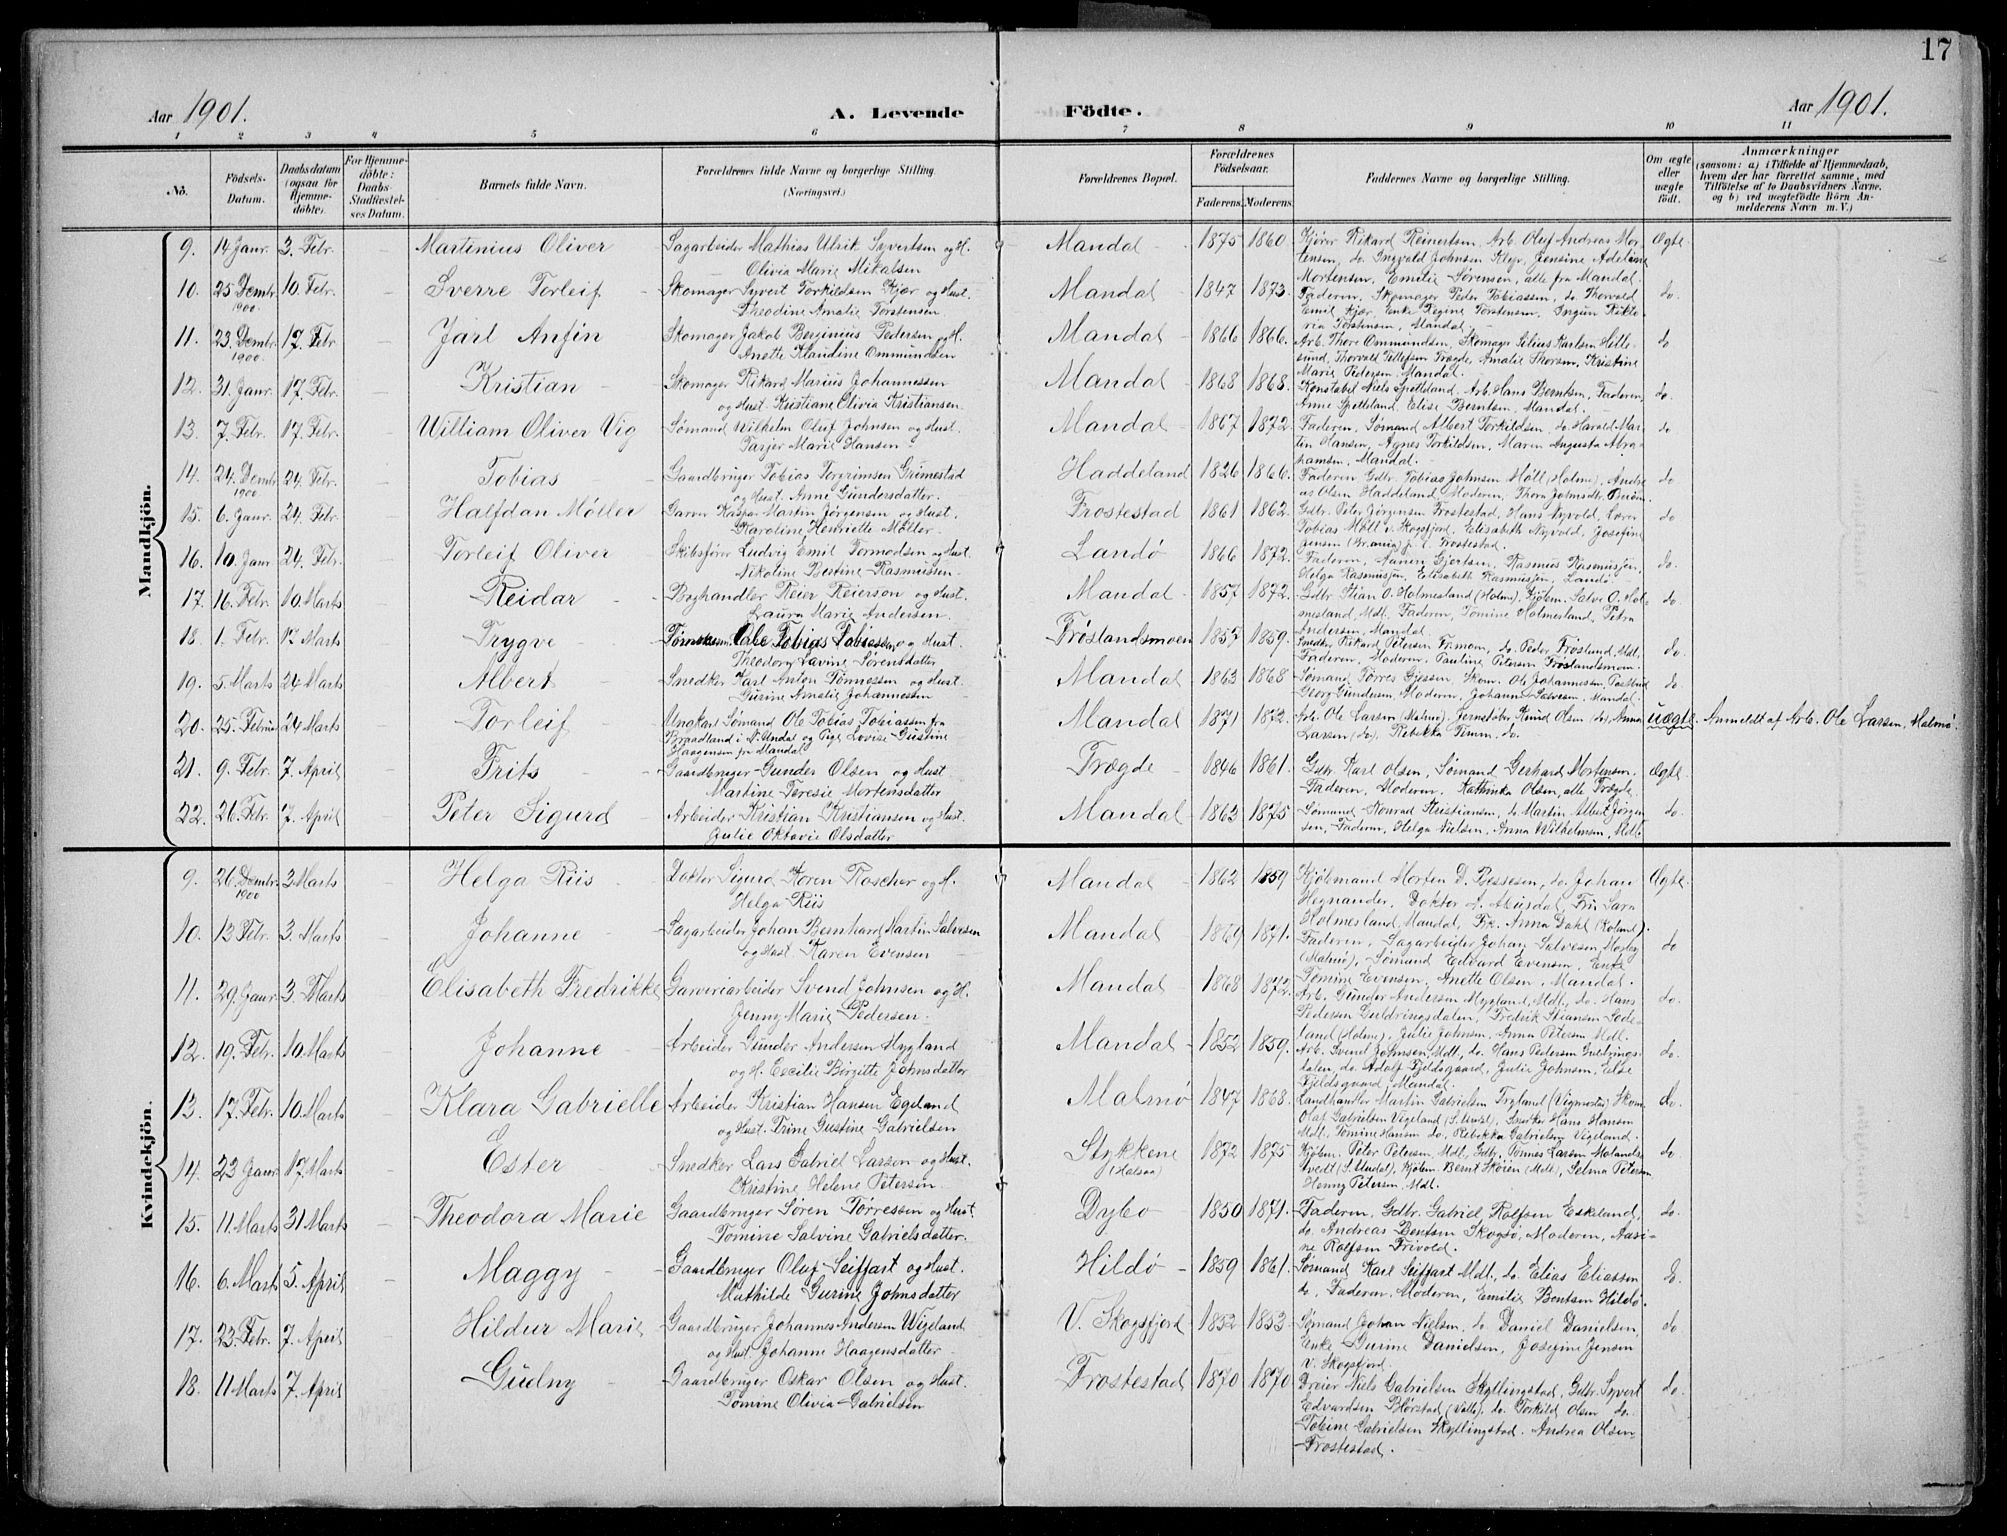 17
Aar 1901.
A. Levende Födte.
Aar 1901.
1 2 3 4 5 6 7 8 9 10 11
No.
Födsels-Datum.
Daabsdatum (ogsaa for Hjemmedöbte).
For Hjemmedöbte: Daabs-Stadfæstelses Datum.
Barnets fulde Navn.
Forældrenes fulde Navne og borgerlige Stilling. (Næringsvei.)
Forældrenes Bopæl.
Forældrenes Födselsaar.
Faderens. Moderens.
Faddernes Navne og borgerlige Stilling.
Om ægte eller uægte födt.
Anmærkninger
(saasom: a) i Tilfælde af Hjemmedaab, hvem der har forrettet samme, med Tilföielse af to Daabsvidners Navne, og b) ved uægtefödte Börn Anmelderens Navn m. V.)
Mandkjön.
9. 14 Januar 3. Febr. Martinius Oliver Sagarbeider Mathias Ulrik Syvertsen og H. Olivia Marie Mikalsen Mandal 1875 1860 Kjører Rikard Reinertsen, Arb. Oluf Andreas Mortensen, do. Ingvald Johnsen Kleve, Jensine Adeline Mortensen, Emelie Sørensen, alle fra Mandal. Ægte
10. 25 Dembr. 1900. 10. Febr. Sverre Torleif Skomager Syvert Torkildsen Kjær og Hust. Theodine Amalie Torstensen Mandal 1847 1873. Faderen, Skomager Peder Tobiassen, do. Thorvald Emil Kjær, Enke Regine Torstensen, Mandal. do.
11. 23. Dembr. 1900. 17. Febr. Jarl Anfin Skomager Jakob Berginius Pedersen og H. Anette Klaudine Ommundsen Mandal 1866 1866. Arb. Thore Ommundsen, Skomager Selius Karlsen Hillesund, Thorvald Tellefsen Trægde, Amalie Thorsen, Kristine Marie Pedersen, Mandal. do
12. 31. Januar 17. Febr. Kristian Skomager Rikard Marius Johannessen og Hust. Kristiane Olivia Kristiansen Mandal 1868 1868. Konstabel Niels Spetteland, Arb. Hans Berntsen, Faderen, Anne Spetteland, Elise Berntsen, Mandal. do.
13. 7. Febr. 17. Febr. William Oliver Vig Sømand Wilhelm Oluf Johnsen og Hust. Marie Hansen Mandal 1867 1872. Faderen, Sømand Albert Torkildsen, do. Harald Martin Hansen, Agnes Torkildsen, Maren Augusta Abrahamsen, Mandal. do
14. 24. Dembr. 1900 24. Febr. Tobias Gaardbruger Tobias Torgrimsen Grimestad og Hust. Anne Gundersdatter. Haddeland 1826 1866. Faderen, Gdbr. Tobias Johnsen Møll (Holme), Andreas Olsen Haddeland, Moderen, do
15. 6. Januar 24. Febr. Halfdan Möller Garver Kaspar Martin Jørgensen og Hust. Karoline Henriette Møller. Frostestad 1861 1862. Gdbr. Peter Jørgensen Frostestad, Hans Nyvold, Tobias Møll v. Skogsfjord, Elisabeth Nyvold, Josefine Jensen Frostestad. do
16. 10. Januar 24. Febr. Torleif Oliver Skibsfører Ludvig Emil Tormodsen og Hust. Nikoline Bertine Rasmussen Landø 1866 1872. Faderen, Gjertsen, Rasmus Rasmussen, Helga Rasmussen, Elisabeth Rasmussen, Landø. do.
17. 16. Febr. 10. Marts Reidar Boghandler Reier Reierson og Hust. Laura Marie Andersen. Mandal 1857 1872. Gdbr. Stian O. Holmesland (Holme), Kjøbm. Salve O. Holmesland, Mdl. Faderen, Tomine Holmesland, Petra Andersen, Mandal. do.
18. 1. Febr. 17 Marts Trygve Ole Tobias Tobiassen og Hust. Theodora Lavine Sørensdatter Frøslandsmoen 1857 1859. Smedker Rikard Petersen Fr.moen, do. Peder Frøslund, Mdl. Faderen, Moderen, Pauline Petersen Frøslandsmoen. do.
19. 5. Marts 24 Marts Albert Snedker Karl Anton Tønnessen og Hust. Gurine Amalie Johannessen Mandal 1863 1868 Sømand Tørres Gjesen, Skom. Ole Johannessen, Postbud Georg Gundersen, Moderen, Johanne Salvesen, Mandal. do
20. 25. Februar 24 Marts Torleif Ungkarl Sømand Ole Tobias Tobiassen fra Braadland i N. Undal og Pige Lovise Gustine Haagensen fra Mandal Mandal 1871 1872. Arb. Ole Larsen (Malmø). Jernstøber Knud Olsen (do), Anna Larsen (do), Rebekka Timm do. uægte. Anmeldt af Arb. Ole Larsen, Malmø.
21. 9. Febr. 7. April Frits Gaardbruger Gunder Olsen og Hust. Martine Teresie Mortensdatter Trægde 1846 1861. Gdbr. Karl Olsen, Sømand Gerhard Mortensen, Faderen, Moderen, Kathinka Olsen, alle Trægde. Ægte
22. 26. Febr. 7. April Peter Sigurd Arbeider Kristian Kristiansen og Hust. Julie Oktavie Olsdatter Mandal 1863 1875 Sømand Konrad Kristiansen, do. Martin Albert Jørgensen, Faderen, Helga Nielsen, Anna Wilhelmsen, Mdl. do.
Kvindekjön.
9. 26. Dembr. 1900 3. Marts Helga Riis Doktor Sigurd Koren Roscher og H. Helga Riis Mandal 1862 1859 Kjøbmand Morten D. Bessesen, do. Johan Hegnander, Doktor A. Aasdal, Fru Sara Holmesland, Mandal, Frk. Anna Dahl (Roland). Ægte.
10. 13 Febr. 3. Marts Johanne Sagarbeider Johan Bernhard Martin Salvesen og Hust. Karen Evensen Mandal 1869 1871. Faderen, Sagarbeider Johan Salvesen, (Malmø), Sømand Edvard Evensen, Enke Tomine Evensen, Anette Olsen, Mandal. do
11. 29. Januar 3. Marts Elisabeth Fredrikke Garveriarbeider Svend Johnsen og H. Jenny Marie Pedersen. Mandal 1868 1872. Arb. Gunder Andersen Mygland, Mdl., do. Hans Pedersen Guldringsdalen, Fredrik Stiansen (Holme), Julie Johnsen, Anna Petersen Mdl. do.
12. 19. Febr. 10 Marts Johanne Arbeider Gunder Andersen Mygland og H. Cecilie Birgitte Johnsdatter Mandal 1852 1859. Arb. Svend Johnsen, Mdl., do. Hans Pedersen Guldringsdalen, do. Adolf Fjeldsgaard, Julie Johnsen, Else Fjeldsgaard, Mandal. do.
13. 17. Febr. 10. Marts Klara Gabrielle Arbeider Kristian Hansen Egeland og Hust. Trine Gustine Gabrielsen Malmø 1847 1868. Landhandler Martin Gabrielsen Fryland (Vigmostad) Skom. Olaf Gabrielsen Vigeland (S. Undal), Snedker Hans Hansen Mdl., Tomine Hansen do., Rebekka Gabrielsen Vigeland. do.
14. 23 Januar 17. Marts Ester Snedker Lars Gabriel Larsen og Hust. Kristine Helene Petersen. Stykkene (Halsaa) 1872 1875 Kjøbm. Peter Petersen Mdl., Gdbr. Tønnes Larsen (S. Undal), Kjøbm. Bernt Skøien (Mdl), Selma Petersen Henny Petersen, Mdl. do.
15. 11 Marts 31 Marts Theodora Marie Gaardbruger Søren Tørressen og Hust. Tomine Salvine Gabrielsdatter. Dybo 1850 1871. Faderen, Gdbr. Gabriel Rolfsen Eskeland, do. Andreas Bentsen Skogsø, Moderen, Aasine Rolfsen Frivold. do.
16. 6. Marts 5. April Maggy Gaardbruger Oluf Seiffart og Hust. Mathilde Gurine Johnsdatter Hildø 1859 1861. Sømand Karl Seiffart Mdl., do. Elias Eliassen do., Faderen, Moderen, Emilie Bentsen Hildø. do.
17. 23. Febr. 7. April Hildur Marie Gaardbruger Johannes Andersen Wigeland og Hust. Johanne Haagensdatter. V. Skogsfjord 1852 1853. Sømand Johan Nielsen, do. Daniel Danielsen, Enke Gurine Danielsen, Josefine Jensen V. Skogsfjord. do
18. 11 Marts 7. April Gudny Gaardbruger Oskar Olsen og Hust. Tomine Olivia Gabrielsen Frostestad 1870 1870. Dreier Niels Gabrielsen Skyllingstad, Gdbr. Syvert Edvardsen, do. Torkild Olsen do. Tobine Gabrielsen Skyllingstad. Andrea Olsen Frostestad. do.